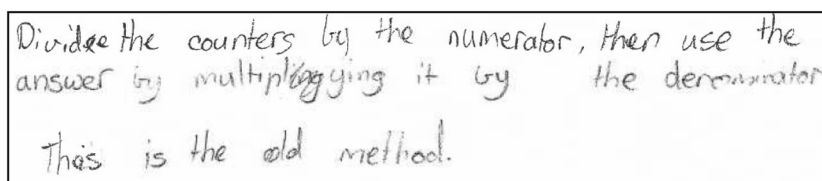 Divide the counters by the numerator, then use the
answer by multiplying it by the denominator
This is the old method.